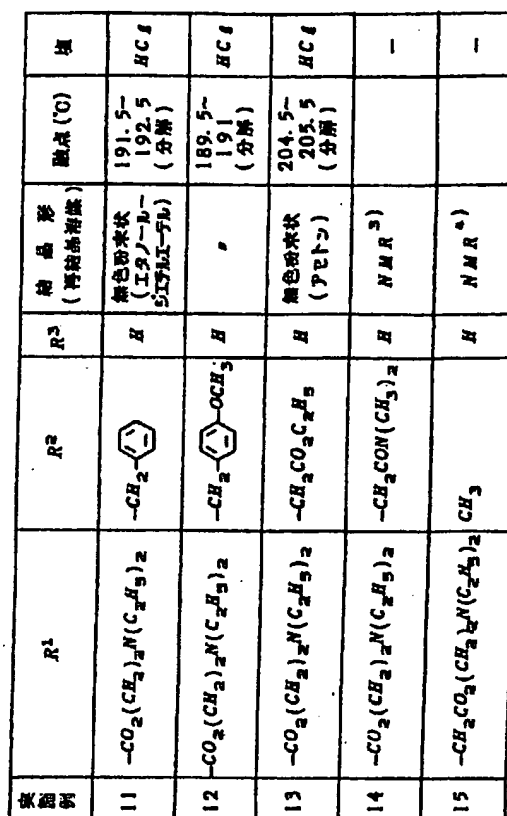 実施例 R¹ R² R³ 結晶形(再結晶溶媒) 融点(℃) 塩
11 -CO₂(CH₂)₂N(C₂H₅)₂ -CH₂ H 無色粉末状(エタノール-ジエチルエーテル) 191.5~192.5(分解) HCl
12 -CO₂(CH₂)₂N(C₂H₅)₂ -CH₂ OCH₃ H 〃 189.5~191(分解) HCl
13 -CO₂(CH₂)₂N(C₂H₅)₂ -CH₂CO₂C₂H₅ H 無色粉末状(アセトン) 204.5~205.5(分解) HCl
14 -CO₂(CH₂)₂N(C₂H₅)₂ -CH₂CON(CH₃)₂ H NMR³⁾ —
15 -CH₂CO₂(CH₂)₂N(C₂H₅)₂ CH₃ H NMR⁴⁾ —